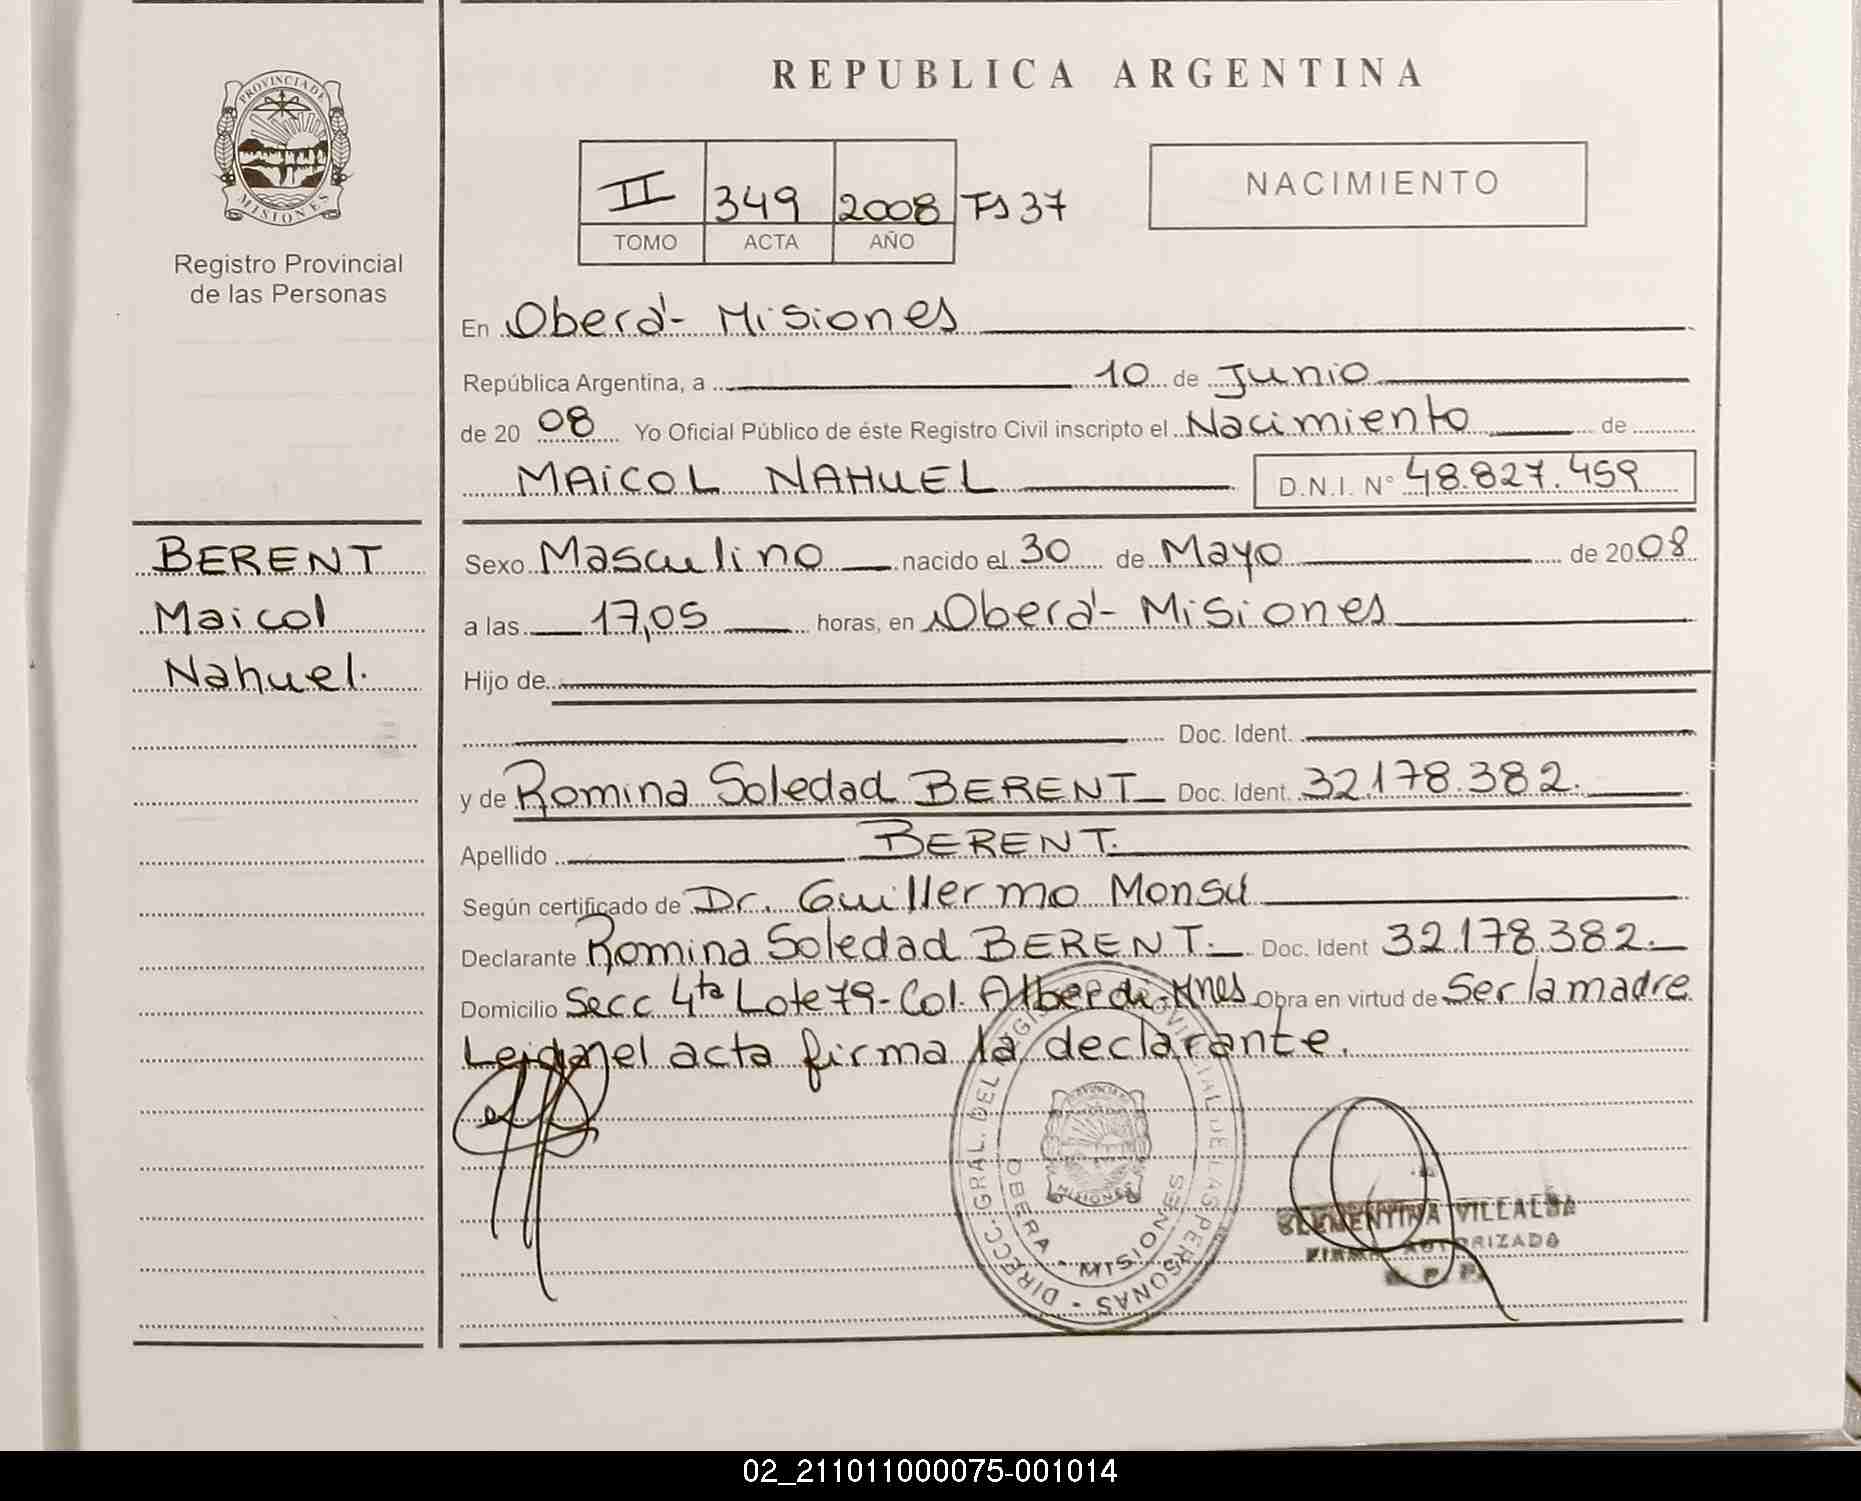 REPUBLICA ARGENTINA
PROVINCIA DE
MISIONES
Registro Provincial
de las Personas
II 349 2008 Fs 37
TOMO ACTA AÑO
NACIMIENTO
En Oberá - Misiones
República Argentina, a 10 de Junio
de 20 08 Yo Oficial Público de éste Registro Civil inscripto el Nacimiento de
MAICOL NAHUEL D.N.I. N° 48.827.459
BERENT
Maicol
Nahuel.
Sexo Masculino nacido el 30 de Mayo de 2008
a las 17,05 horas, en Oberá - Misiones
Hijo de
Doc. Ident.
y de Romina Soledad BERENT Doc. Ident. 32.178.382.
Apellido BERENT.
Según certificado de Dr. Guillermo Monsu
Declarante Romina Soledad BERENT. Doc. Ident 32.178.382.
Domicilio Secc 4ta Lote 79 - Col. Alberdi - Mnes Obra en virtud de Ser la madre
Leida el acta firma la declarante.
DIRECC. GRAL. DEL REGISTRO PROVINCIAL DE LAS PERSONAS
OBERA - MISIONES
MISIONES
CLEMENTINA VILLALBA
FIRMA AUTORIZADA
R. P. P.
02_211011000075-001014